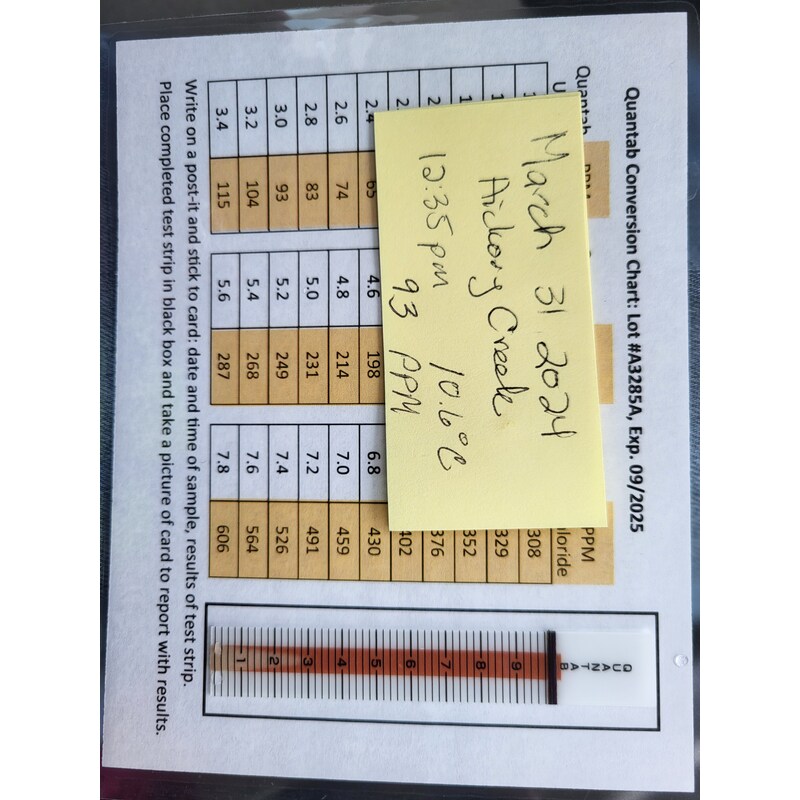 Quantab Conversion Chart: Lot #A3285A, Exp. 09/2025
Quantab PPM
PPM
U loride
308
329
352
376
402
2.4 65 4.6 198 6.8 430
2.6 74 4.8 214 7.0 459
2.8 83 5.0 231 7.2 491
3.0 93 5.2 249 7.4 526
3.2 104 5.4 268 7.6 564
3.4 115 5.6 287 7.8 606
March 31 2024
Hickory Creek
12:35 pm 10.6°C
93 PPM
Write on a post-it and stick to card: date and time of sample, results of test strip.
Place completed test strip in black box and take a picture of card to report with results.
QUANTAB
9
8
7
6
5
4
3
2
1